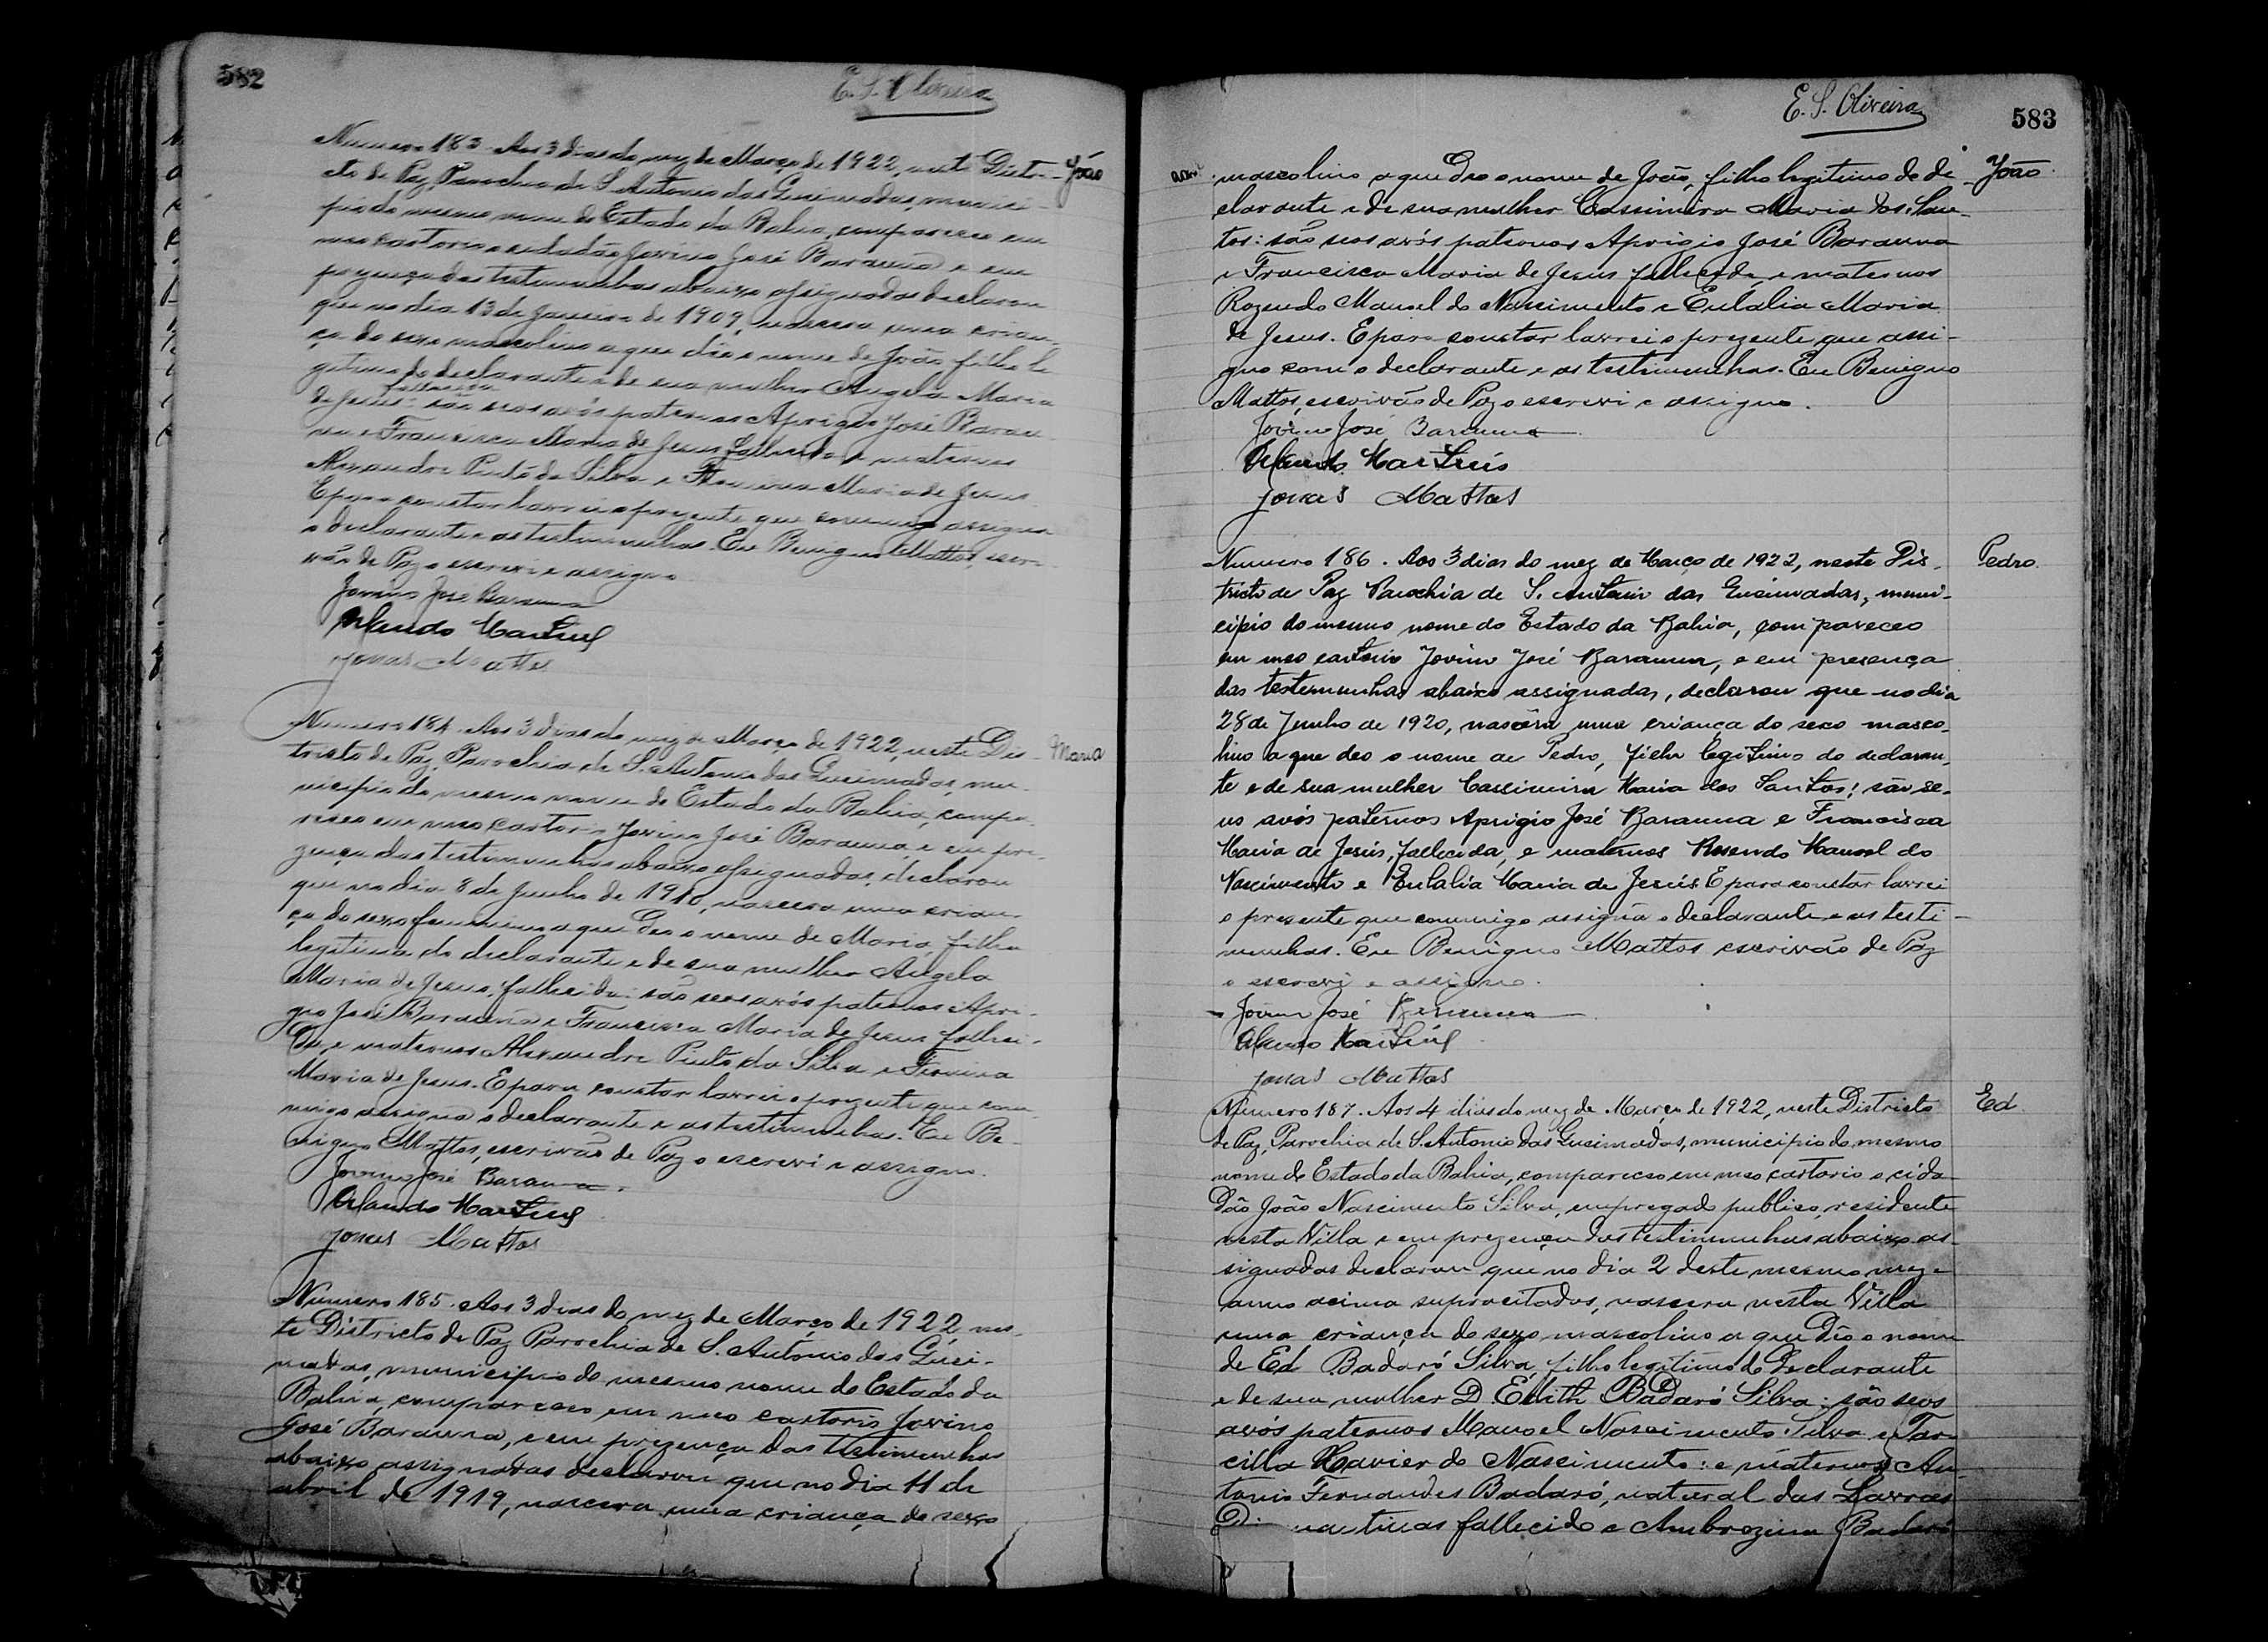 582
E. S. Oliveira
Numero 183. Aos 3 dias do mez de Março de 1922, neste Distri-
cto de Paz, Parochia de S. Antonio das Queimadas, munici-
pio do mesmo nome do Estado da Bahia, compareceo em
meo cartorio o cidadão Jovino José Barauna e em
prezença das testimunhas abaixo assignadas declarou
que no dia 13 de Janeiro de 1909, nascera uma crian-
ça do sexo masculino a que dêo o nome de João, filho le
gitimo do declarante e de sua mulher Angela Maria
fallecida
de Jesus: são seos avós paternos Aprigio José Barau
na e Francisca Maria de Jesus fallecida e maternos
Alexandre Pinto da Silva e Maria de Jesus.
E para constar lavrei o prezente que commigo assigna
o declarante e as testimunhas. Eu Benigno Mattos, escri-
vão de Paz o escrevi e assigno.
Jovino José Barauna
Orlando Martins
Jonas Mattos
João
Numero 184. Aos 3 dias do mez de Março de 1922, neste Dis-
tricto de Paz, Parochia de S. Antonio das Queimadas, mu-
nicipio do mesmo nome do Estado da Bahia, compa-
receo em meo cartorio Jovino José Barauna, e em pre-
zença das testimunhas abaixo assignadas, declarou
que no dia 8 de Junho de 1910, nascera uma crian-
ça do sexo feminino a que deo o nome de Maria, filha
legitima do declarante e de sua mulher Angela
Maria de Jesus, fallecida: são seos avós paternos Apri-
gio José Barauna e Francisca Maria de Jesus falleci-
da, e maternos Alexandre Pinto da Silva e
Maria de Jesus. E para constar lavrei o prezente que com-
migo assigna o declarante e as testimunhas. Eu Be-
nigno Mattos, escrivão de Paz o escrevi e assigno.
Jovino José Barauna.
Orlando Martins
Jonas Mattos
Maria
Numero 185. Aos 3 dias do mez de Março de 1922, nes-
te Districto de Paz Parochia de S. Antonio das Quei-
madas, municipio do mesmo nome do Estado da
Bahia, compareceo em meo cartorio Jovino
José Barauna, e em prezença das testimunhas
abaixo assignadas declarou que no dia 11 de
abril de 1919, nascera uma criança do sexo
E. S. Oliveira
583
masculino a que deo o nome de João, filho legitimo do de
clarante e de sua mulher Cassimira Maria dos San-
tos: são seos avós paternos Aprigio José Barauna
e Francisca Maria de Jesus fallecida, e maternos
Rozendo Manoel do Nascimento e Eulalia Maria
de Jesus. E para constar lavrei o prezente que assi-
gno com o declarante e as testimunhas. Eu Benigno
Mattos, escrivão de Paz o escrevi e assigno.
Jovino José Barauna
Orlando Martins
Jonas Mattos
João
Numero 186. Aos 3 dias do mez de Março de 1922, neste Dis-
tricto de Paz Parochia de S. Antonio das Queimadas, muni-
cipio do mesmo nome do Estado da Bahia, compareceo
em meo cartorio Jovino José Barauna, e em presença
das testemunhas abaixo assignadas, declarou que no dia
28 de Junho de 1920, nascêra uma criança do sexo mascu-
lino a que deo o nome de Pedro, filho legitimo do declaran-
te e de sua mulher Cassimira Maria dos Santos: são se-
us avós paternos Aprigio José Barauna e Francisca
Maria de Jesús, fallecida, e maternos Rosendo Manoel do
Nascimento e Eulalia Maria de Jesús E para constar lavrei
o presente que commigo assigna o declarante e as testi-
munhas. Eu Benigno Mattos escrivão de Paz
o escrevi e assigno.
Jovino José Barauna
Orlando Martins
Jonas Mattos
Pedro.
Numero 187. Aos 4 dias do mez de Março de 1922, neste Districto
de Paz, Parochia de S. Antonio das Queimadas, municipio do mesmo
nome do Estado da Bahia, compareceo em meo cartorio o cida
dão João Nascimento Silva, empregado publico, residente
nesta Villa e em prezença das testimunhas abaixo as-
signadas declarou que no dia 2 deste mesmo mez e
anno acima supracitados, nascera nesta Villa
uma criança do sexo masculino a que dêo o nome
de Ed Badaró Silva, filho legitimo do declarante
e de sua mulher D. Edith Badaró Silva: são seos
avós paternos Manoel Nascimento Silva e Tar
cilla Xavier do Nascimento: e maternos An-
tonio Fernandes Badaró, natural das Lavras
fallecido e Ambrozina Badaró
Ed.